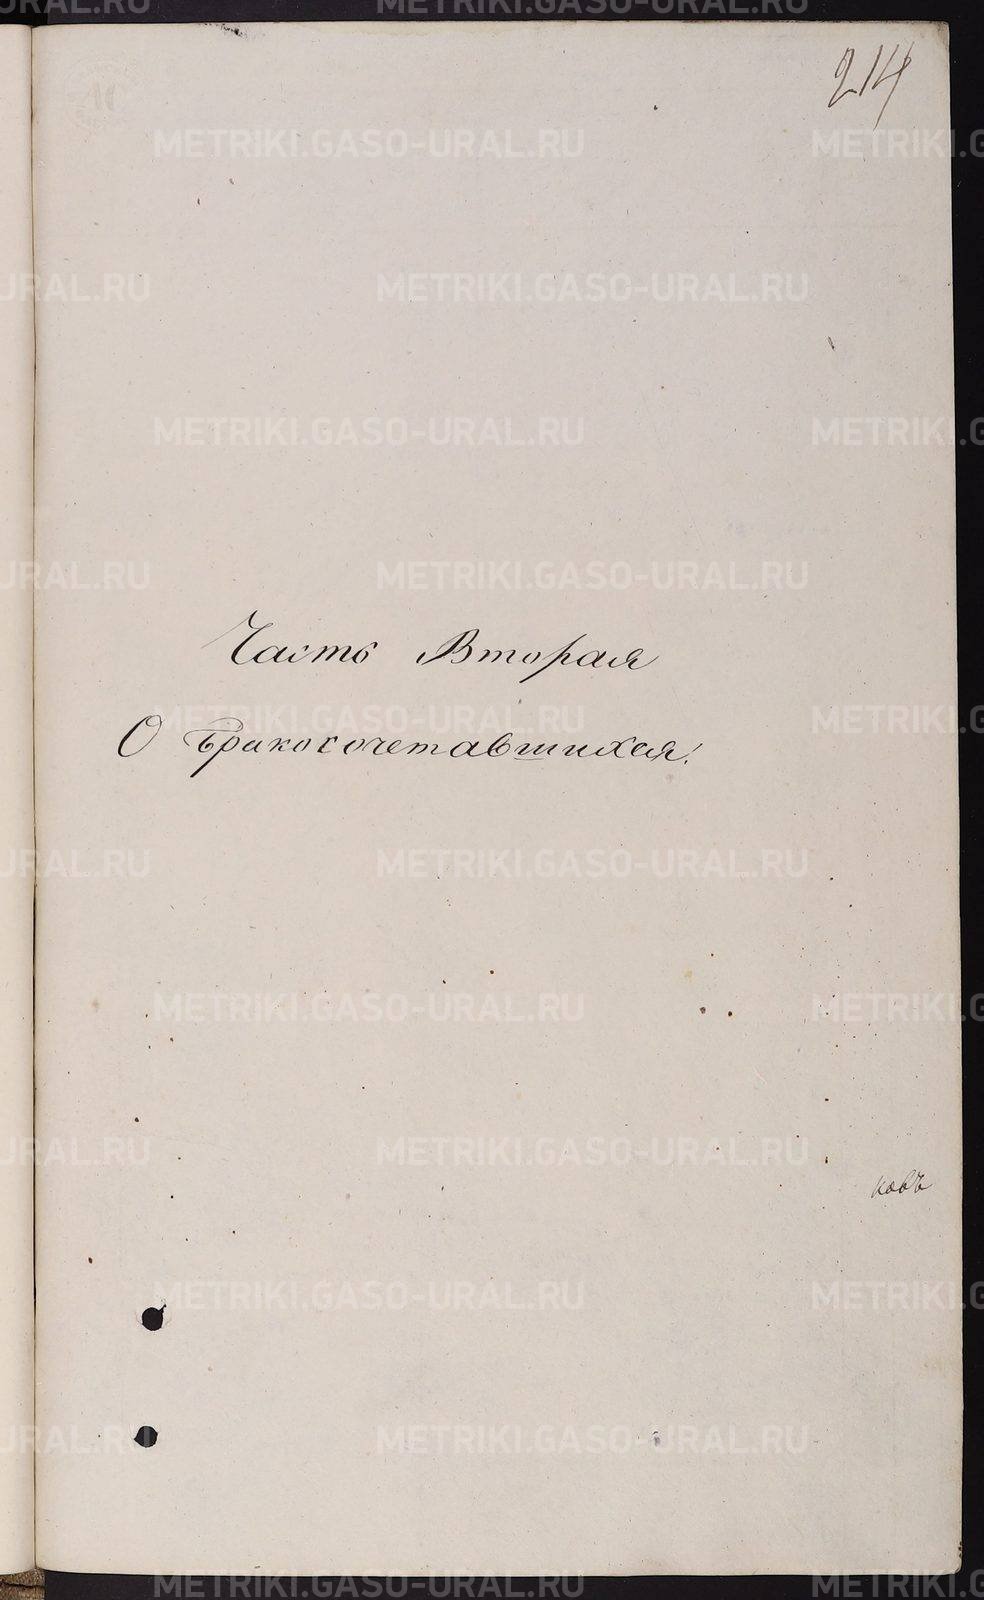 214
Часть Вторая
О Бракосочетавшихся.
ковъ
METRIKI.GASO-URAL.RU